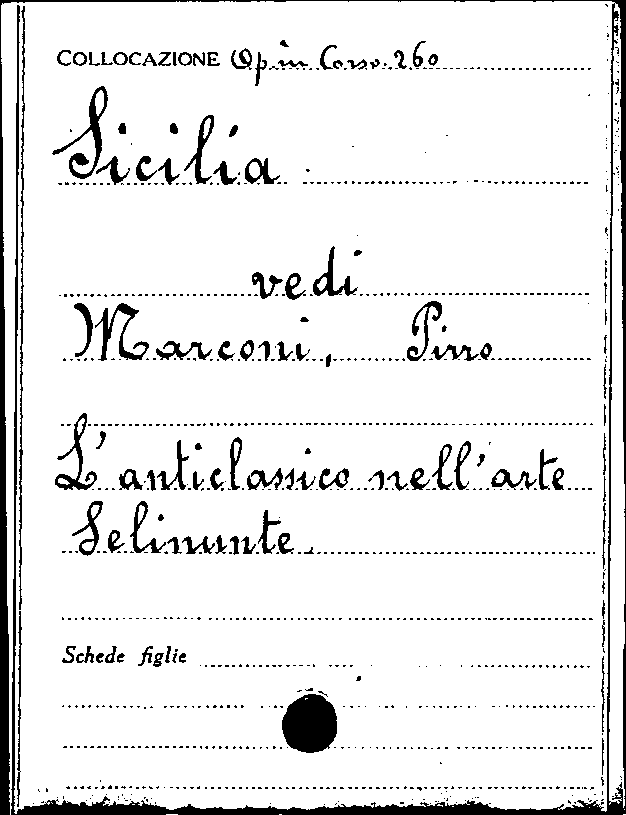 COLLOCAZIONE Op. in Corso. 260
Sicilia
vedi
Marconi, Pirro
L'anticlassico nell'arte
Selinunte.
Schede figlie